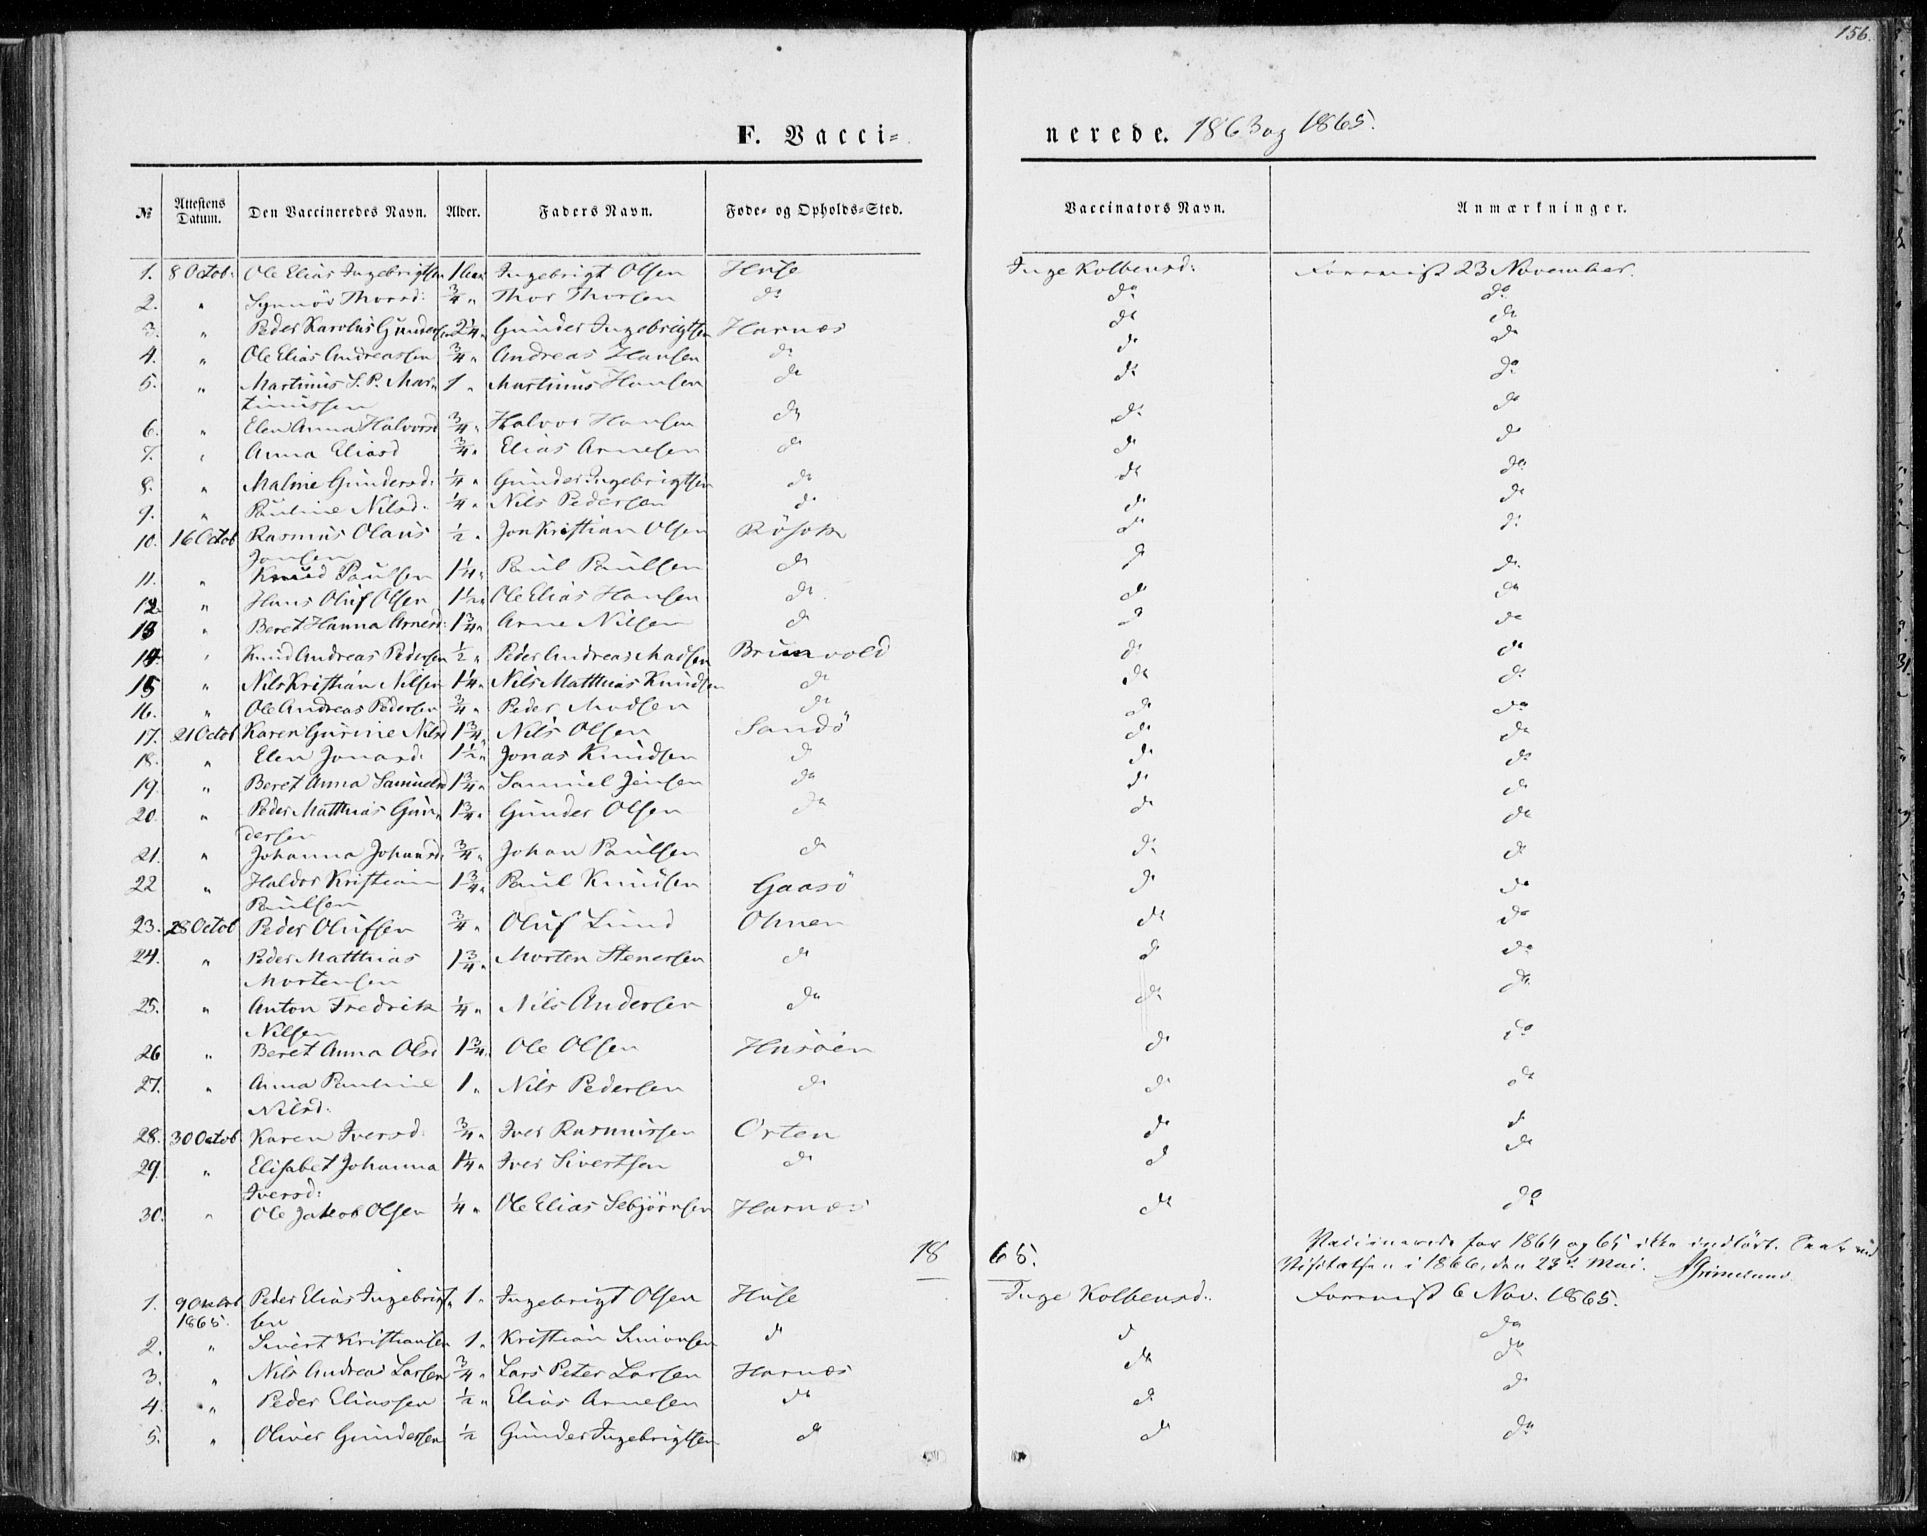 156.
F. Vacci=
nerede. 1863 og 1865.
№ Attestens Datum. Den Vaccineredes Navn. Alder. Faders Navn. Føde= og Opholds=Sted. Vaccinators Navn. Anmærkninger.
1. 8 Octob. Ole Elias Ingebrigtsen Ingebrigt Olsen Huse Inge Kolbensd: 23 November.
2. " Synnøv Thorsd: 3/4 " Thor Thorsen do do do
3. " Peder Karolus Gundersen 2 1/4 " Gunder Ingebrigtsen Harnæs do do
4. " Ole Elias Andreassen 3/4 " Andreas Hansen do do do
5. " Martinus S. P. Mar= 1 " Martinus Hansen do do do
tinussen
6. " Elen Anna Halvorsd 3/4 " Halvor Hansen do do do
7. " Anna Eliasd 3/4 " Elias Arnesen do do do
8. " Maline Gundersd: 1/4 " Gunder Ingebrigtsen do do do
9. " Pauline Nilsd. 1/4 " Nils Pedersen do do do
10. 16 Octob Rasmus Olaus 1/2 " Jon Kristian Olsen Røsok do do
Jonsen
11. " Knud Paulsen 1 1/4 " Paul Paulsen do do do
12. " Hans Oluf Olsen 1 1/2 " Ole Elias Hansen do do do
13 " Beret Hanna Arnesd: 1 3/4 " Arne Nilsen do do do
14 " Knud Andreas Pedersen 1/2 " Peder Andreas Madsen Brunvold do do
15 " Nils Kristian Nilsen 1 1/4 " Nils Matthias Knudsen do do do
16. " Ole Andreas Pedersen 3/4 " Peder Madsen do do do
17. 21 Octob Karen Gurine Nilsd 1 3/4 " Nils Olsen Sandø do do
18. " Elen Jonasd. 1 1/2 " Jonas Knudsen do do do
19. " Beret Anna Samuelsd 1 3/4 " Samuel Jensen do do do
20. " Peder Matthias Gun= 1 3/4 " Gunder Olsen do do do
dersen
21. " Johanna Johansd. 3/4 " Johan Paulsen do do do
22 " Haldor Kristian 1 3/4 " Paul Knudsen Gaasø do do
Paulsen
23. 28 Octob Peder Olufsen 3/4 " Oluf Lund Ohnen do do
24. " Peder Matthias 1 3/4 " Morten Stenersen do do do
Mortensen
25. " Anton Fredrik 1/4 " Nils Andersen do do do
Nilsen
26 " Beret Anna Olsd 1 3/4 " Ole Olsen Husøen do do
27. " Anna Pauline 1 " Nils Pedersen do do do
Nilsd:
28. 30 Octob. Karen Iversd. 3/4 " Iver Rasmussen Orten do do
29. " Elisabet Johanna 1 1/4 " Iver Sivertsen do do do
Iversd:
30. " Ole Jakob Olsen 1/4 " Ole Elias Sebjørnsen Harnæs do do
18 65.
Vaccinerede for 1864 og 65 ikke indført.
Visitatsen i 1866, den 23de Mai.
1. 9 Octob Peder Elias Ingebrigt= 1 " Ingebrigt Olsen Huse Inge Kolbensd. 6 Nov. 1865.
1865. sen
2. " Sivert Kristiansen 1 " Kristian Simonsen do do do
3. " Nils Andreas Larsen 3/4 " Lars Peter Larsen Harnæs do do
4. " Peder Eliassen 1/2 " Elias Arnesen do do do
5. " Oliver Gundersen 1/2 Gunder Ingebrigtsen do do do